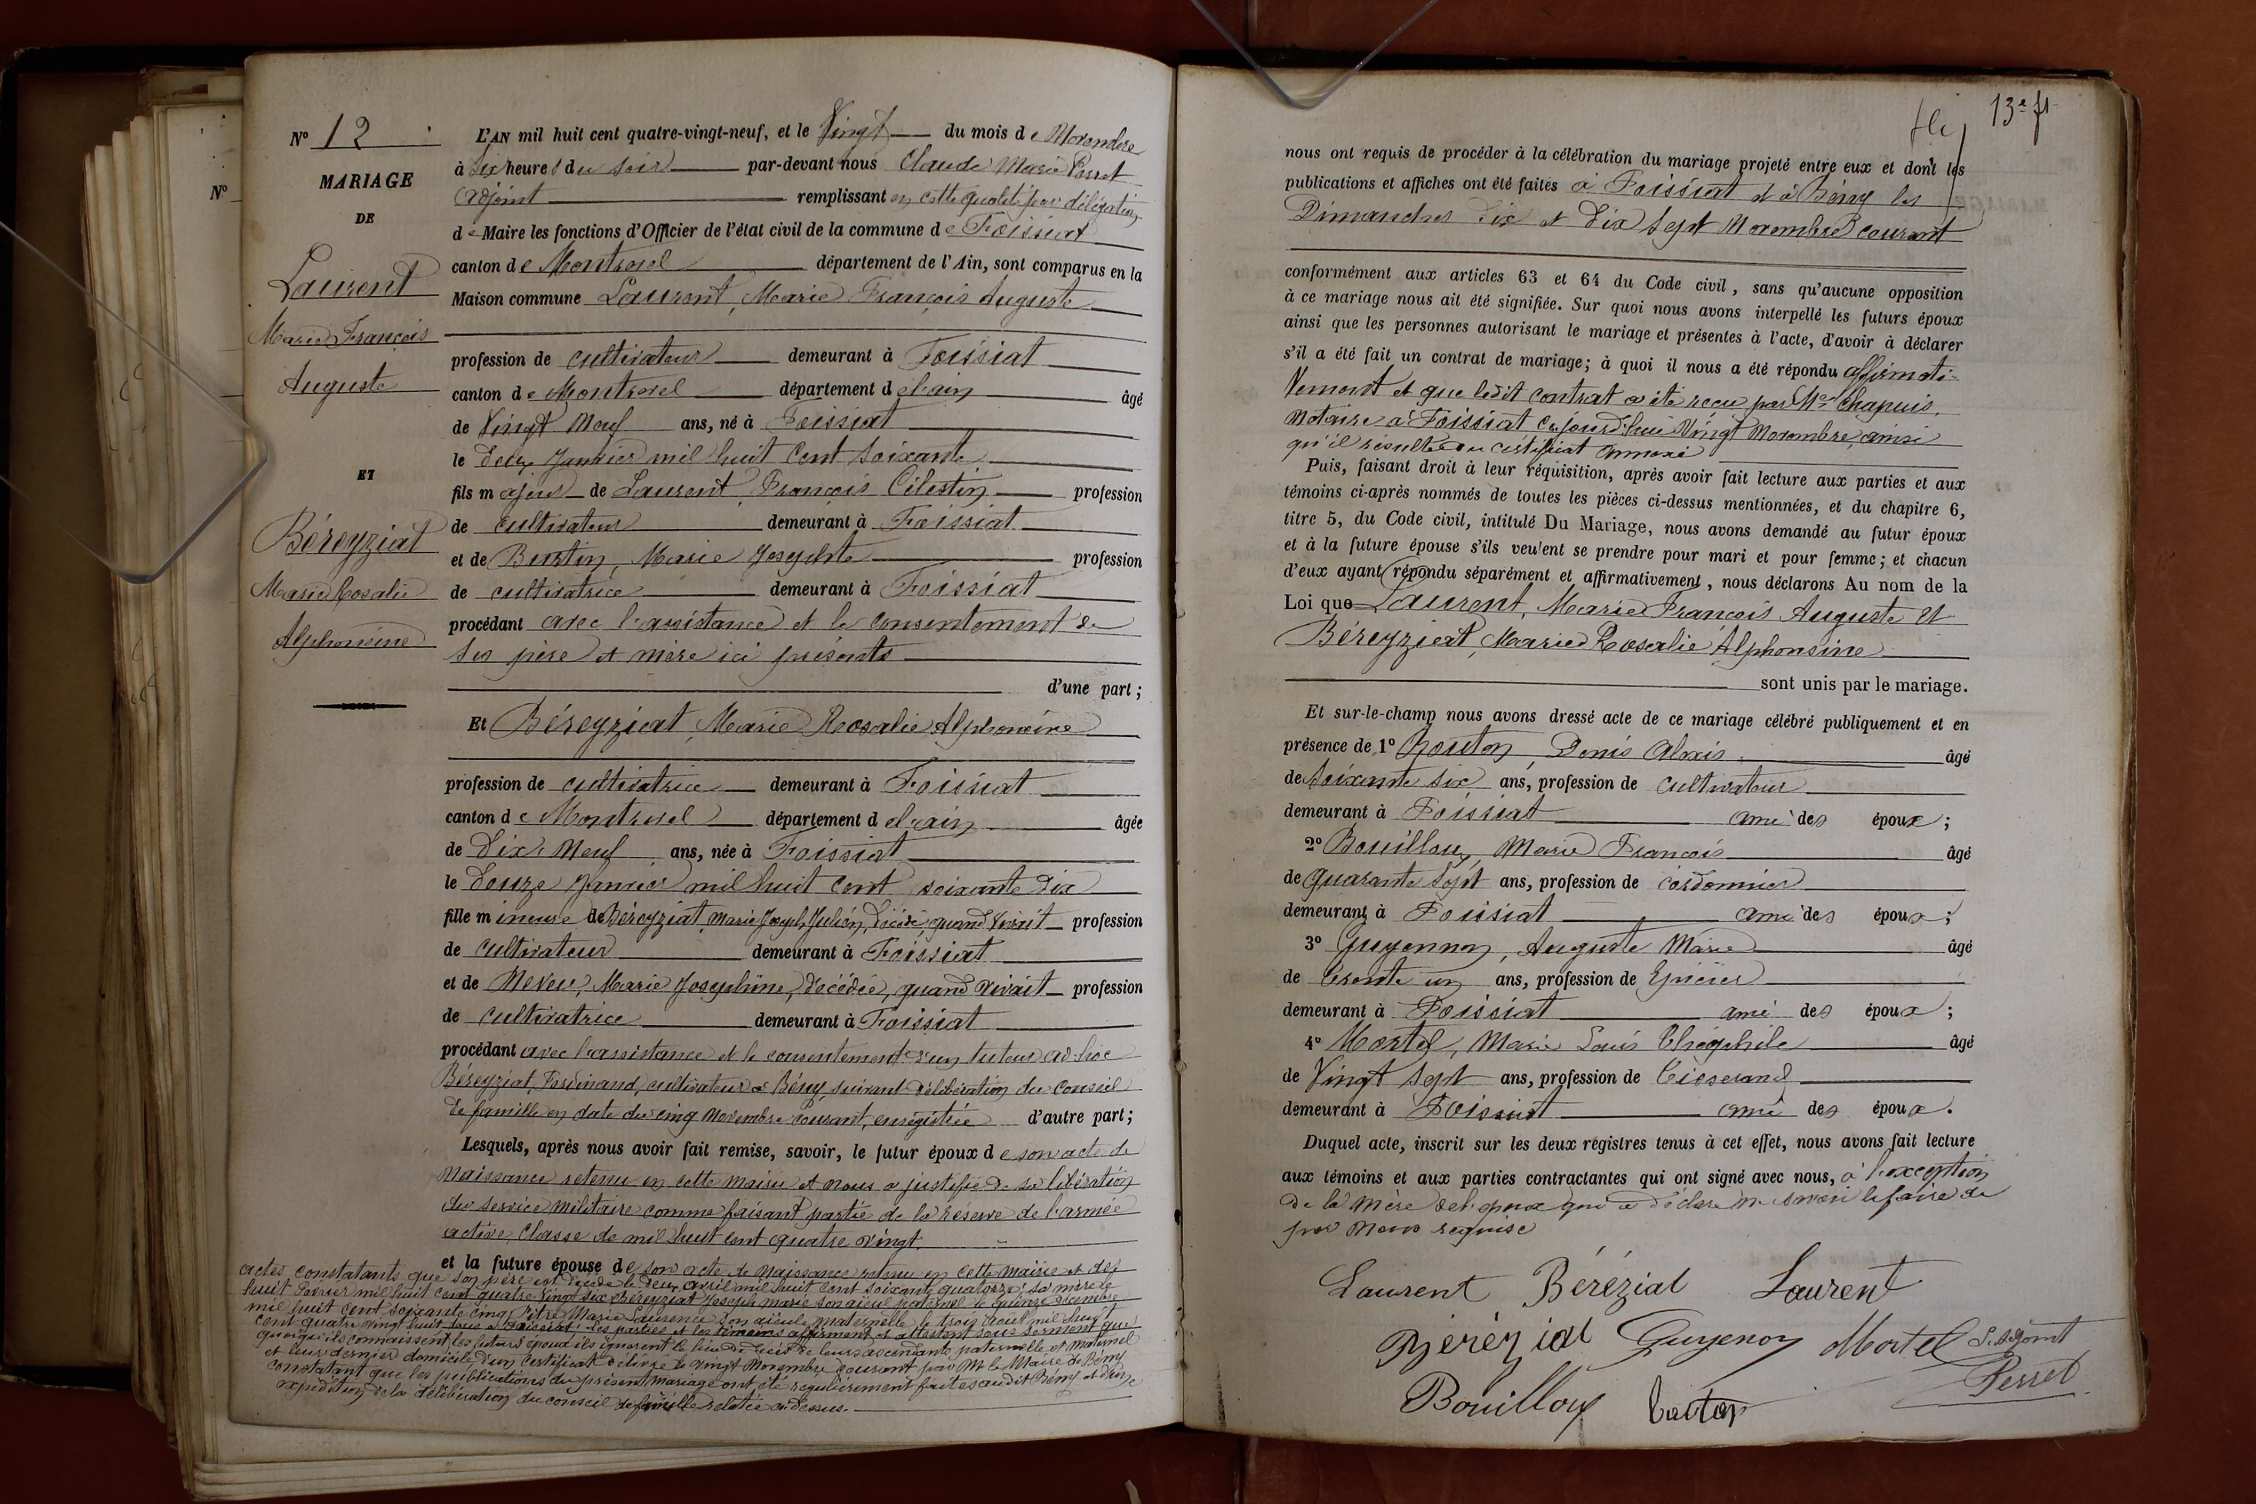 N° 12
MARIAGE
DE
Laurent
Marie François
Auguste
ET
Béreyziat
Marie Rosalie
Alphonsine
N°
L'AN mil huit cent quatre-vingt-neuf, et le Vingt du mois de Novembre
à Six heures du soir par-devant nous Claude Marie Perret
adjoint remplissant en cette qualité par délégation
de Maire les fonctions d'Officier de l'état civil de la commune de Foissiat
canton de Montrevel département de l'Ain, sont comparus en la
Maison commune Laurent, Marie François Auguste
profession de cultivateur demeurant à Foissiat
canton de Montrevel département de l'ain âgé
de Vingt Neuf ans, né à Foissiat
le deux Janvier mil huit Cent Soixante
fils majeur de Laurent François Célestin profession
de cultivateur demeurant à Foissiat
et de Burtin, Marie Josephte profession
de cultivatrice demeurant à Foissiat
procédant avec l'assistance et le consentement de
ses père et mère ici présents
d'une part;
Et Béreyziat, Marie Rosalie Alphonsine
profession de cultivatrice demeurant à Foissiat
canton de Montrevel département de l'ain âgée
de Dix Neuf ans, née à Foissiat
le douze Janvier mil huit cent soixante dix
fille mineure de Béreyziat, Marie Joseph Julien, décédé, quand vivait profession
de cultivateur demeurant à Foissiat
et de Neveu, Marie Joséphine, décédée, quand vivait profession
de cultivatrice demeurant à Foissiat
procédant avec l'assistance et le consentement d'un tuteur ad-hoc
Béreyziat, Ferdinand, cultivateur à Bény, suivant délibération du conseil
de famille en date du cinq Novembre courant, enregistrée d'autre part;
Lesquels, après nous avoir fait remise, savoir, le futur époux de son acte de
Naissance retenu en cette mairie et nous a justifié de sa libération
du service militaire comme faisant partie de la réserve de l'armée
active, Classe de mil huit cent quatre vingt
et la future épouse de son acte de Naissance retenu en cette mairie et des
actes constatants que son père est décédé le deux avril mil huit cent soixante quatorze; sa mère le
huit Février mil huit cent quatre Vingt six Béreyziat Joseph marie son aïeul paternel le quinze décembre
mil huit cent soixante cinq, Pitre Marie Laurence son aïeule maternelle le trois août mil huit
cent quatre vingt huit tous à Foissiat. Les parties et les témoins affirment et attestent sous serment que
quoiqu'ils connaissent les futurs époux ils ignorent le lieu de décès de leurs ascendants paternelle et maternel
et leur dernier domicile. D'un Certificat délivré le vingt Novembre courant par Mr le Maire de Bény
constatant que les publications du présent mariage ont été régulièrement faites audit Bény et d'une
expédition de la délibération du conseil de famille relatée ci-dessus.
13e ft
nous ont requis de procéder à la célébration du mariage projeté entre eux et dont les
publications et affiches ont été faites à Foissiat et à Bény les
Dimanches dix et dix sept Novembre courant
conformément aux articles 63 et 64 du Code civil, sans qu'aucune opposition
à ce mariage nous ait été signifiée. Sur quoi nous avons interpellé les futurs époux
ainsi que les personnes autorisant le mariage et présentes à l'acte, d'avoir à déclarer
s'il a été fait un contrat de mariage; à quoi il nous a été répondu affirmati-
Vement et que ledit contrat a été reçu par Me Chapuis,
Notaire à Foissiat Cejourd'hui Vingt Novembre, ainsi
qu'il résulte du certificat annexé
Puis, faisant droit à leur réquisition, après avoir fait lecture aux parties et aux
témoins ci-après nommés de toutes les pièces ci-dessus mentionnées, et du chapitre 6,
titre 5, du Code civil, intitulé Du Mariage, nous avons demandé au futur époux
et à la future épouse s'ils veulent se prendre pour mari et pour femme; et chacun
d'eux ayant répondu séparément et affirmativement, nous déclarons Au nom de la
Loi que Laurent, Marie François Auguste et
Béreyziat, Marie Rosalie Alphonsine
sont unis par le mariage.
Et sur-le-champ nous avons dressé acte de ce mariage célébré publiquement et en
présence de 1° Denis Alexis âgé
de Soixante six ans, profession de cultivateur
demeurant à Foissiat ami des époux;
2° Bouilloux, Marie François âgé
de quarante Sept ans, profession de cordonnier
demeurant à Foissiat ami des époux;
3° Guyennon, Auguste Marie âgé
de trente un ans, profession de Epicier
demeurant à Foissiat ami des époux;
4° Mortel, Marie Louis Théophile âgé
de Vingt Sept ans, profession de tisserand
demeurant à Foissiat ami des époux.
Duquel acte, inscrit sur les deux régistres tenus à cet effet, nous avons fait lecture
aux témoins et aux parties contractantes qui ont signé avec nous, à l'exception
de la mère de l'époux qui a déclaré ne savoir le faire de
par Nous requise
Laurent Bérézial Laurent
Bérézial Guyenon Mortel L'adjoint
Bouilloux Perret